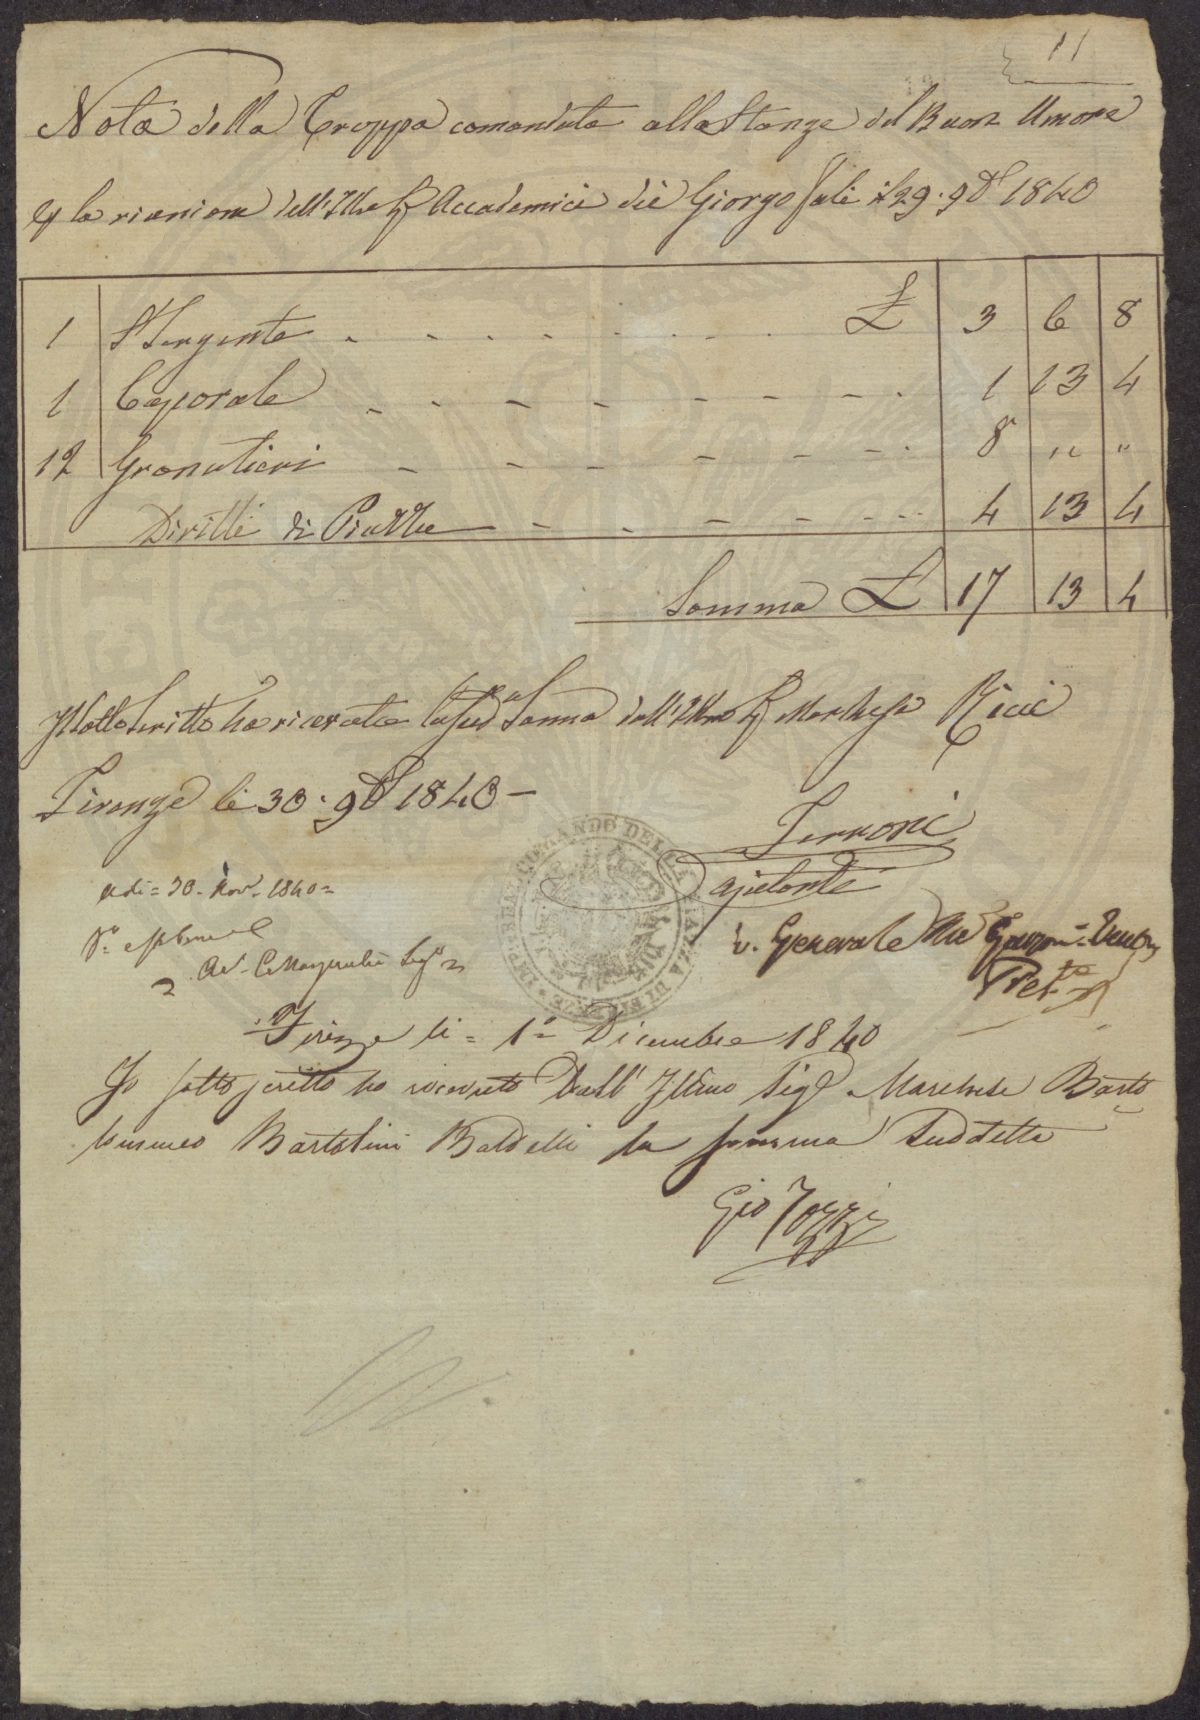 11
Nota della Troppa comandata alla Stanze del Buon Umore
la riunione dell' Accademici dei Giorgo fali il 29. 9b 1840
1 Sergente £ 3 6 8
1 Caporale 1 13 4
12 Granatieri 8 " "
Diritti di Piazza 4 13 4
Somma £ 17 13 4
Il Sotto Scritto ha ricevuta la Sud.a Somma dall' Marchese Ricci
Firenze li 30. 9b 1840
ajutante
adi= 30. Nov. 1840=
v. Generale
IMP. E REAL COMANDO DELLA PIAZZA DI FIRENZE
Firenze li = 1° Dicembre 1840
Io sotto scritto ho ricevuto Dall' Illmo Sig. Marchese Barto
lommeo Bartolini Baldelli la somma Suddetta
Gio Tozzi